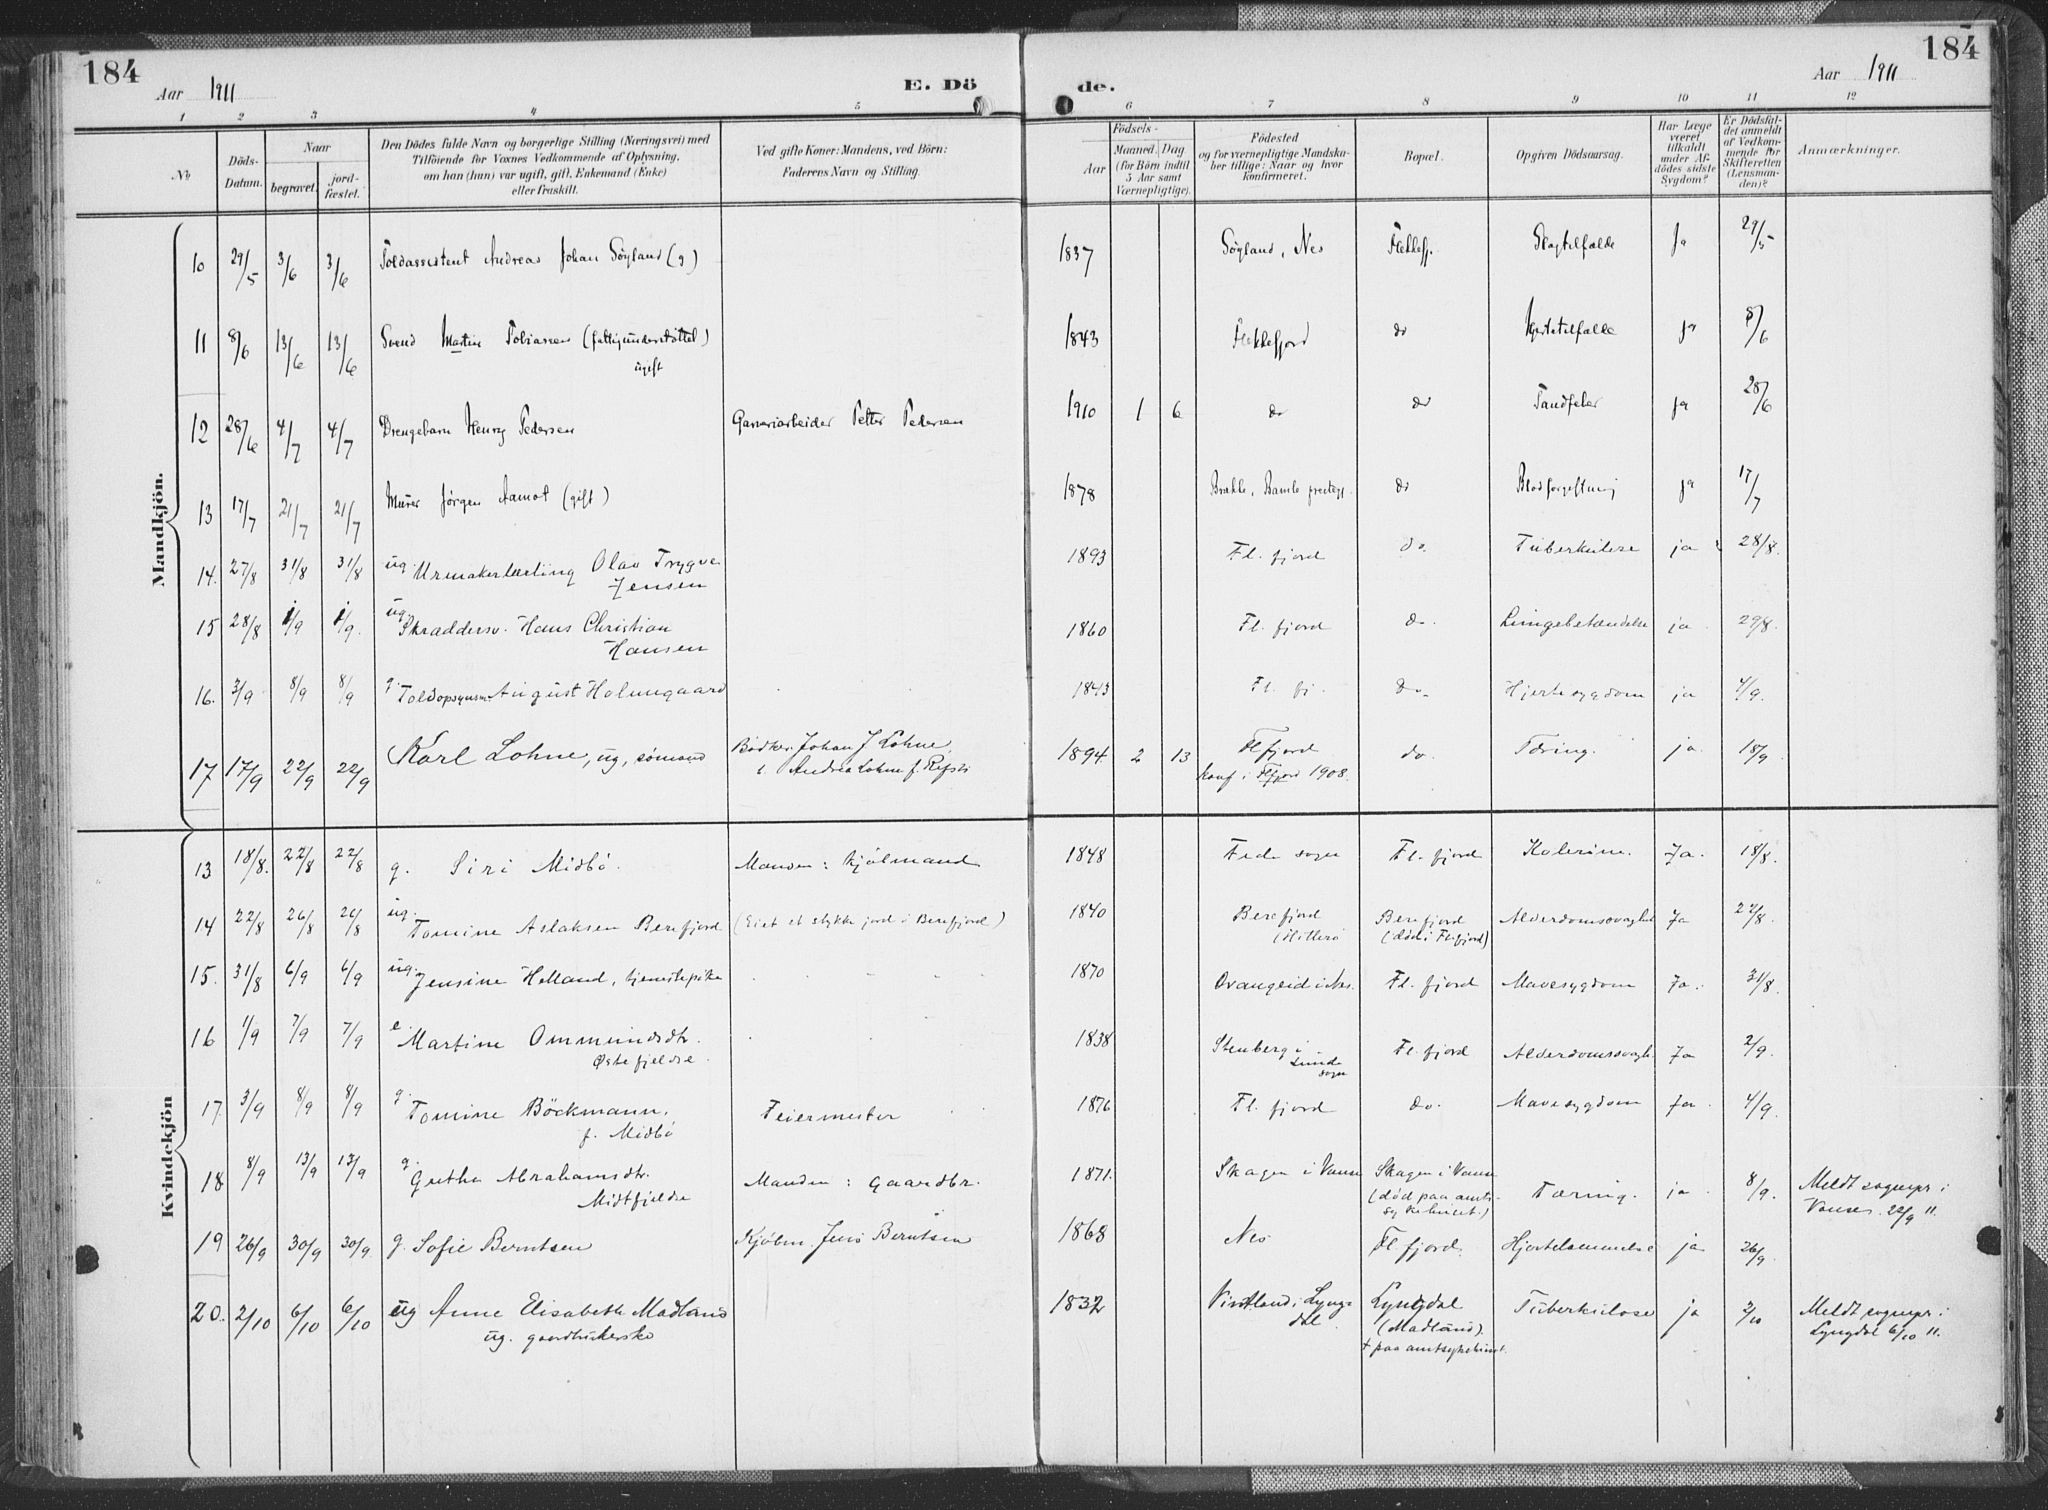 184
Aar 1911
E. Dö
de.
Aar 1911
184
1 2 3 4 5 6 7 8 9 10 11 12
No
Döds-
Datum.
Naar
begravet.
jord-
fæstet.
Den Dödes fulde Navn og borgerlige Stilling (Næringsvei) med
Tilföiende for Voxnes Vedkommende af Oplysning,
om han (hun) var ugift, gift, Enkemand (Enke)
eller fraskilt.
Ved gifte Koner: Mandens, ved Börn:
Faderens Navn og Stilling.
Födsels-
Aar
Maaned. Dag.
(for Börn indtil
5 Aar samt
Værnepligtige).
Födested
og for værnepligtige Mandska-
ber tillige: Naar og hvor
konfirmeret.
Bopæl.
Opgiven Dödsaarsag.
Har Læge
været
tilkaldt
under Af-
dödes sidste
Sygdom?
Er Dödsfal-
det anmeldt
af Vedkom-
mende for
Skifteretten
(Lensman-
den)?
Anmærkninger.
Mandkjön.
10 29/5 3/6 3/6 Toldassistent Andreas Johan Söyland (g) 1837 Söyland, Nes Flekkefj. Slagtilfælde Ja 29/5
11 8/6 13/6 13/6 Svend Martin Tobiassen (fattigunderstöttet) 1843 Flekkefjord do Hjertetilfælde Ja 8/6
ugift
12 28/6 4/7 4/7 Drengebarn Henry Pedersen Garveriarbeider Petter Pedersen 1910 1 6 do do Tandfeber Ja 28/6
13 17/7 21/7 21/7 Murer Jörgen Aamot (gift) 1878 Brække, Bamle prestegj. do Blodforgiftning ja 17/7
14. 27/8 31/8 31/8 ug. Urmakerlærling Olav Trygve 1893 Fl. fjord do. Tuberkulose ja 28/8.
Jensen
15 28/8 1/9 1/9. ug. Skraddersv. Hans Christian 1860 Fl. fjord do. Lungebetændelse ja 29/8.
Hansen
16. 3/9 8/9 8/9 g. Toldopsynsm. August Holmegaard 1843 Fl. fj. do. Hjertesygdom ja 4/9.
17 17/9 22/9 22/9 Karl Lohne, ug, sømand Bødker Johan J Lohne, 1894 2 13 Fl.fjord do. Tæring. ja 18/9.
Andrea Lohne f. konf i Flfjord 1908.
Kvindekjön
13 18/8. 22/8 22/8 g. Siri Midbö. Manden: kjölmand 1848 Feda sogn Fl. fjord Kolerine. Ja. 18/8.
14 22/8 26/8 26/8 ug. Tomine Aslaksen Berefjord (Eiet et stykke jord i Berefjord) 1840 Berefjord Berefjord Alderdomssvaghet Ja 22/8.
(Hitterö (död i Fl.fjord)
15. 31/8 6/9 6/9 ug. Jensine Helland, tjenestepike 1870 Drangeid i Nes. Fl. fjord Mavesygdom Ja. 31/8.
16 1/9 7/9 7/9 e Martine Ommundsdtr. 1838 Stenberg i Fl. fjord Alderdomssvagh. Ja 2/9.
Østefjeldse. Lunde
sogn
17 3/9 8/9 8/9 g. Tomine Böckmann, Feiermester 1876 Fl. fjord do. Mavesygdom Ja 4/9.
f. Midbö
18. 8/9 13/9 13/9 g. Grethe Abrahamsdtr. Manden: gaardbr. 1871. Skagen i Vanse Skagen i Vanse Tæring. ja 8/9. Meldt sognepr i
Midtfjeldse (død paa amts- Vanse. 22/9 11.
sykehuset.)
19 26/9 30/9 30/9. g. Sofie Berntsen Kjøbm. Jens Berntsen 1868 Nes Fl. fjord. Hjertelammelse ja 26/9.
20. 2/10 6/10 6/10 ug Anne Elisabeth Madland 1832 Vintland i Lyng- Lyngdal Tuberkulose ja 2/10 Meldt sognepr i
ug. gaardbrukerske dal. (Madland). Lyngdal 6/10 11.
+ paa amtsykehuset.